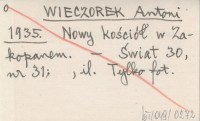 WIECZOREK Antoni
1935. Nowy kościół w Za-
kopanem. – Świat 30,
nr 31; , il. Tylko fot.